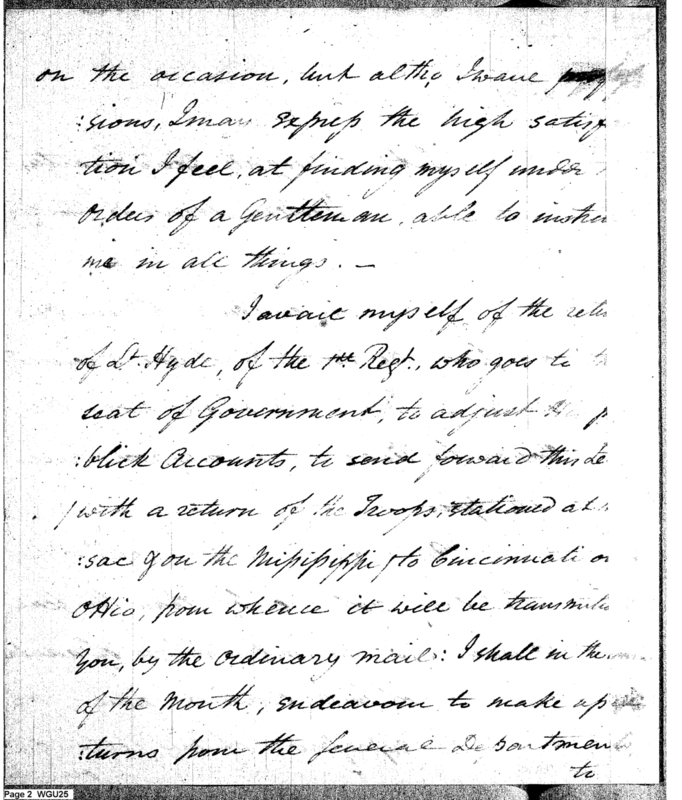 on the occasion, but altho I wave
:sions, I may express the high satisf
tion I feel, at finding myself under
orders of a Gentleman, able to instru
me in all things. —
I avail myself of the retu
of Lt. Hyde, of the 1st Regt., who goes to
seat of Government, to adjust p
:blick Accounts, to send forward this Le
(with a return of the Troops, stationed at
:sac & on the Missisippi) to Cincinnati on
Ohio, from whence it will be transmitte
You, by the ordinary mail: I shall in the
of the Month, endeavour to make up
:turns from the several Departmen
to
Page 2 WGU25